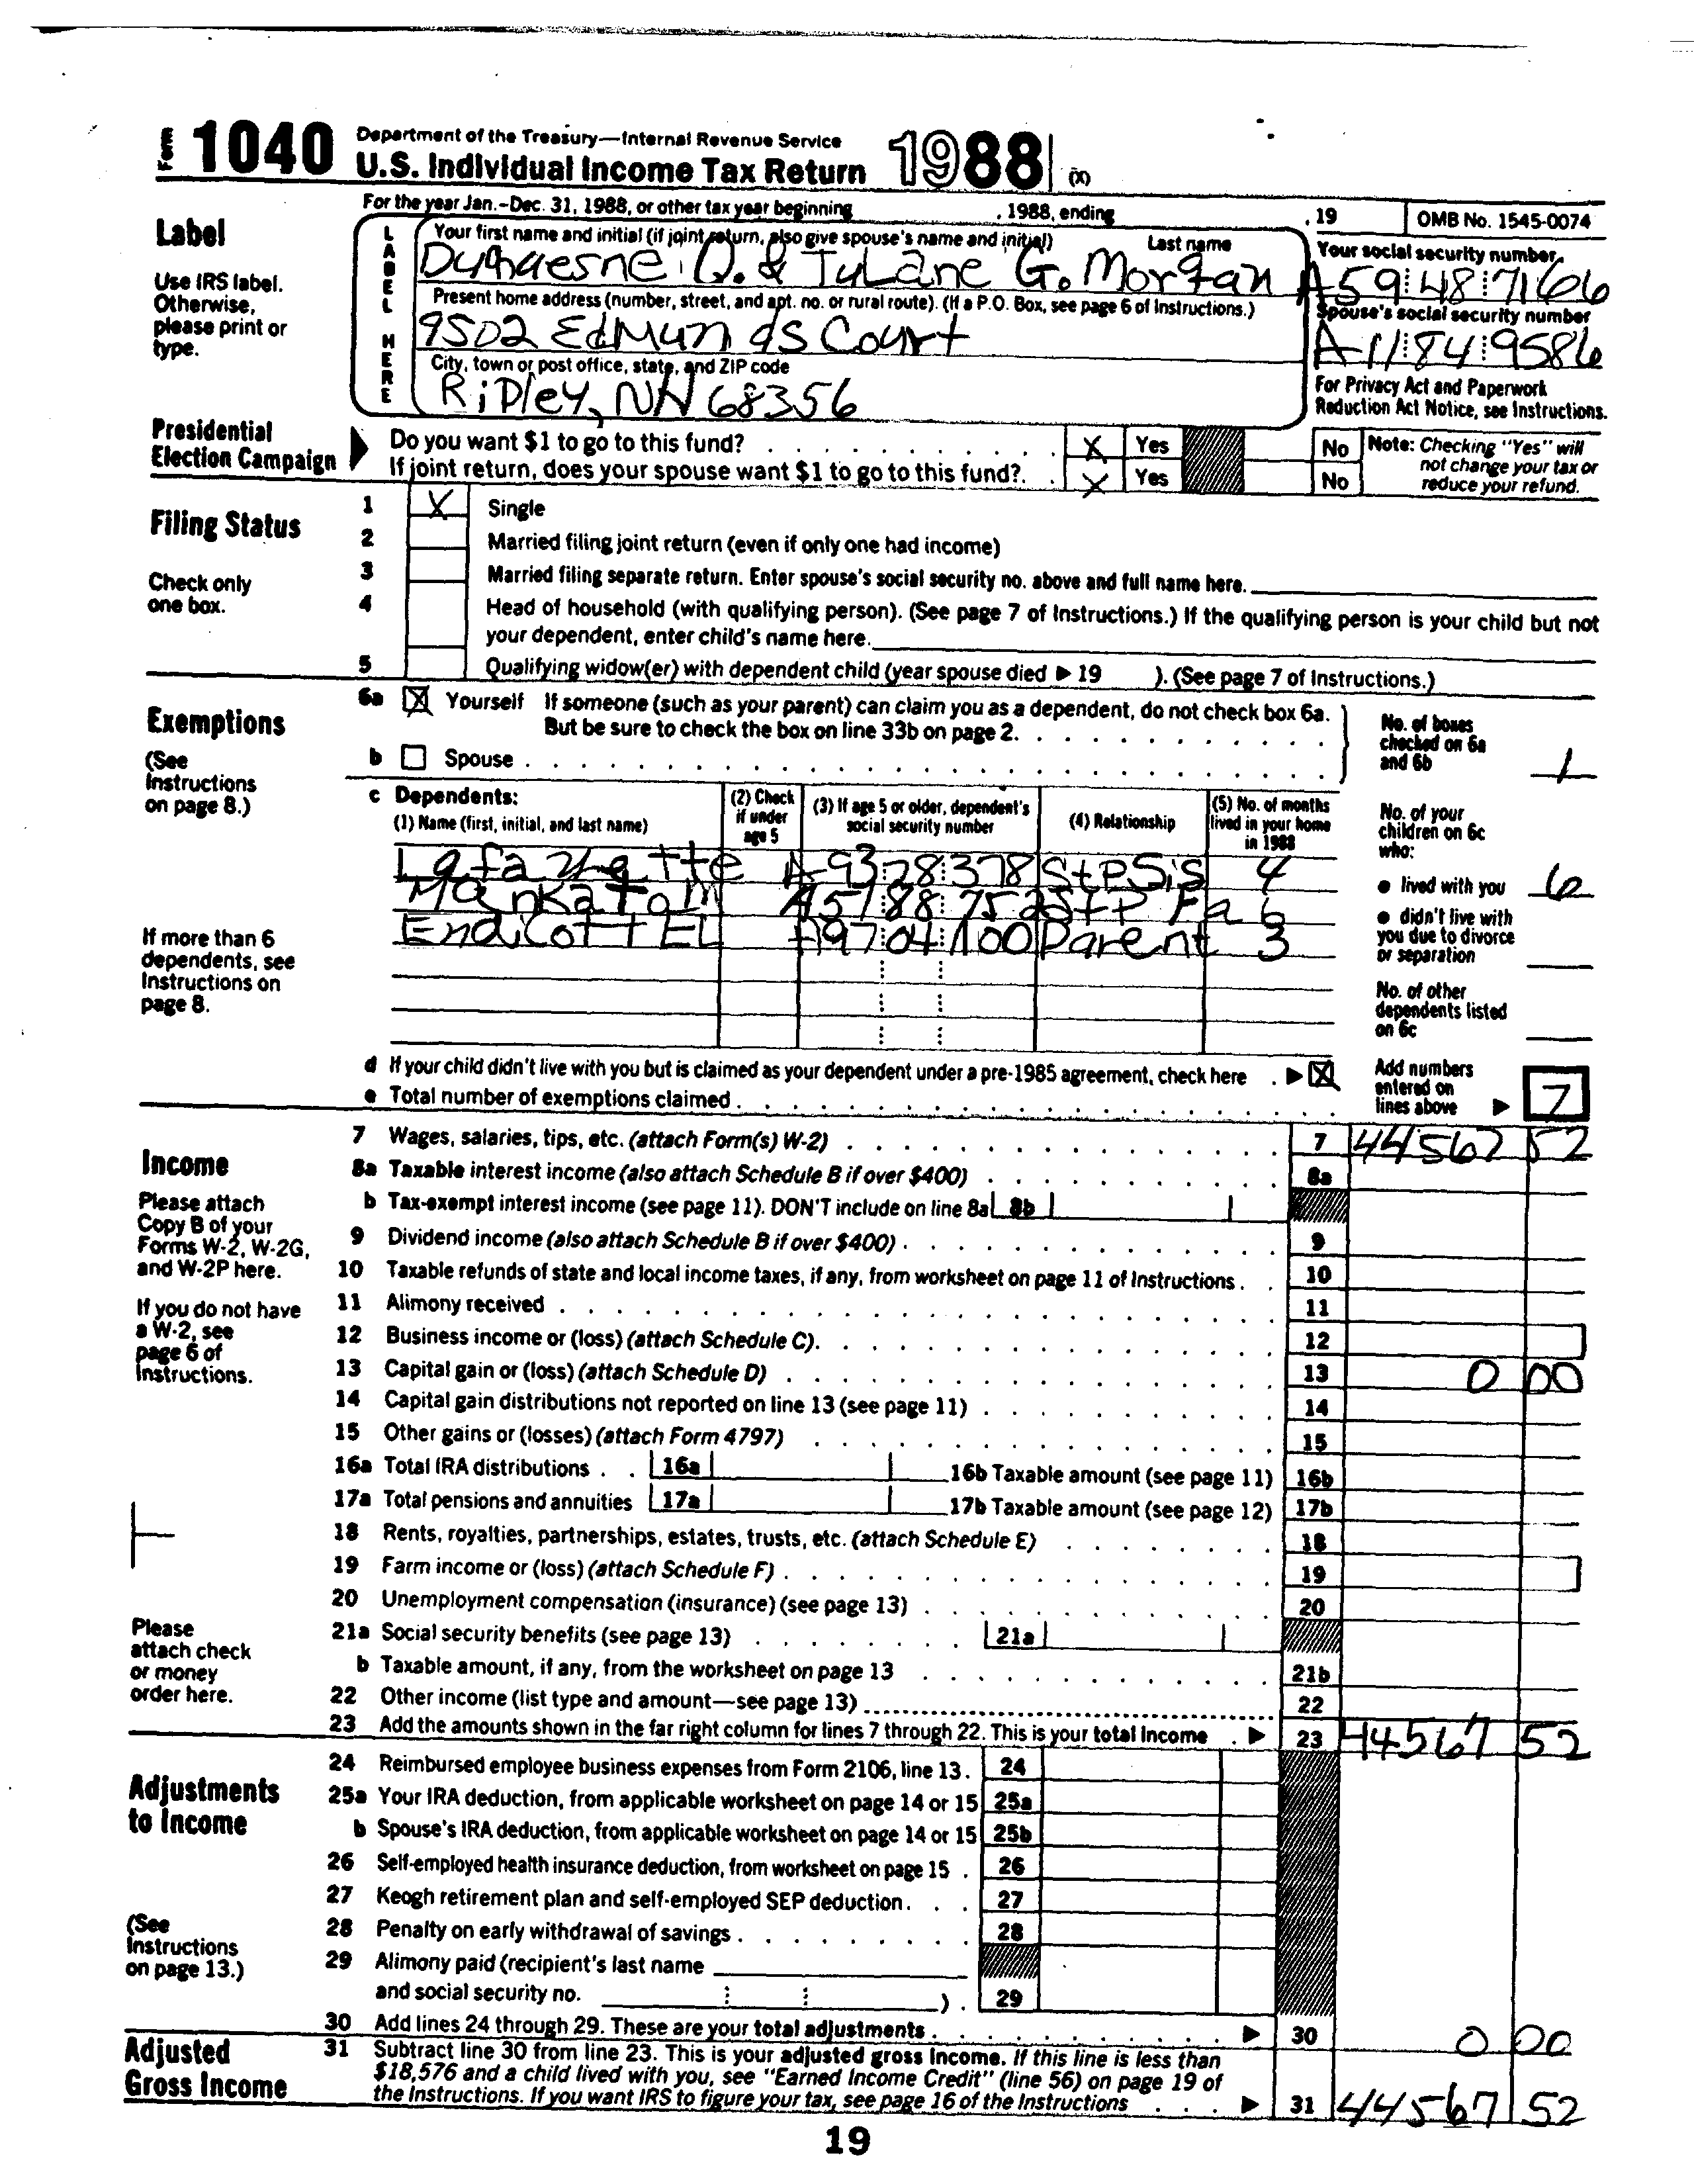 Form 1040 Department of the Treasury—Internal Revenue Service
U.S. Individual Income Tax Return 1988 (X)
For the year Jan.-Dec. 31, 1988, or other tax year beginning , 1988, ending , 19 OMB No. 1545-0074
Label
Use IRS label. Otherwise, please print or type.
LABEL HERE
Your first name and initial (if joint return, also give spouse's name and initial) Last name
Duquesne Q. & TuLane G. Morgan
Your social security number
A59 48 7166
Present home address (number, street, and apt. no. or rural route). (If a P.O. Box, see page 6 of Instructions.)
9502 Edmunds Court
Spouse's social security number
A11 84 9586
City, town or post office, state, and ZIP code
Ripley, NH 68356
For Privacy Act and Paperwork Reduction Act Notice, see Instructions.
Presidential Election Campaign
Do you want $1 to go to this fund? X Yes No
If joint return, does your spouse want $1 to go to this fund? X Yes No
Note: Checking "Yes" will not change your tax or reduce your refund.
Filing Status
Check only one box.
1 X Single
2 Married filing joint return (even if only one had income)
3 Married filing separate return. Enter spouse's social security no. above and full name here.
4 Head of household (with qualifying person). (See page 7 of Instructions.) If the qualifying person is your child but not
your dependent, enter child's name here.
5 Qualifying widow(er) with dependent child (year spouse died ▶ 19 ). (See page 7 of Instructions.)
Exemptions
(See Instructions on page 8.)
6a X Yourself If someone (such as your parent) can claim you as a dependent, do not check box 6a.
But be sure to check the box on line 33b on page 2.
b Spouse
No. of boxes checked on 6a and 6b 1
c Dependents:
(1) Name (first, initial, and last name) (2) Check if under age 5 (3) If age 5 or older, dependent's social security number (4) Relationship (5) No. of months lived in your home in 1988
Lafayette A93 78 378 StpSis 4
Mankato M A51 88 752 Stp Fa 6
Endicott EL A97 04 100 Parent 3
No. of your children on 6c who:
• lived with you 6
• didn't live with you due to divorce or separation
No. of other dependents listed on 6c
If more than 6 dependents, see Instructions on page 8.
d If your child didn't live with you but is claimed as your dependent under a pre-1985 agreement, check here ▶ X
e Total number of exemptions claimed
Add numbers entered on lines above ▶ 7
Income
Please attach Copy B of your Forms W-2, W-2G, and W-2P here.
If you do not have a W-2, see page 6 of Instructions.
Please attach check or money order here.
7 Wages, salaries, tips, etc. (attach Form(s) W-2) 7 44567 52
8a Taxable interest income (also attach Schedule B if over $400) 8a
b Tax-exempt interest income (see page 11). DON'T include on line 8a 8b
9 Dividend income (also attach Schedule B if over $400) 9
10 Taxable refunds of state and local income taxes, if any, from worksheet on page 11 of Instructions 10
11 Alimony received 11
12 Business income or (loss) (attach Schedule C) 12
13 Capital gain or (loss) (attach Schedule D) 13 0 00
14 Capital gain distributions not reported on line 13 (see page 11) 14
15 Other gains or (losses) (attach Form 4797) 15
16a Total IRA distributions 16a 16b Taxable amount (see page 11) 16b
17a Total pensions and annuities 17a 17b Taxable amount (see page 12) 17b
18 Rents, royalties, partnerships, estates, trusts, etc. (attach Schedule E) 18
19 Farm income or (loss) (attach Schedule F) 19
20 Unemployment compensation (insurance) (see page 13) 20
21a Social security benefits (see page 13) 21a
b Taxable amount, if any, from the worksheet on page 13 21b
22 Other income (list type and amount—see page 13) 22
23 Add the amounts shown in the far right column for lines 7 through 22. This is your total income ▶ 23 44567 52
Adjustments to Income
(See Instructions on page 13.)
24 Reimbursed employee business expenses from Form 2106, line 13. 24
25a Your IRA deduction, from applicable worksheet on page 14 or 15 25a
b Spouse's IRA deduction, from applicable worksheet on page 14 or 15 25b
26 Self-employed health insurance deduction, from worksheet on page 15 26
27 Keogh retirement plan and self-employed SEP deduction 27
28 Penalty on early withdrawal of savings 28
29 Alimony paid (recipient's last name
and social security no. ) 29
30 Add lines 24 through 29. These are your total adjustments ▶ 30 0 00
Adjusted Gross Income
31 Subtract line 30 from line 23. This is your adjusted gross income. If this line is less than
$18,576 and a child lived with you, see "Earned Income Credit" (line 56) on page 19 of
the Instructions. If you want IRS to figure your tax, see page 16 of the Instructions ▶ 31 44567 52
19